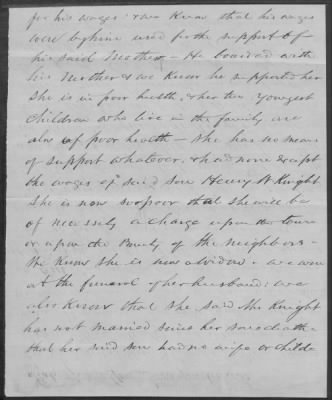 for his wages & we know that his wages
were by him used for the support of
his said Mother – He boarded with
his Mother & we know he supported her
She is in poor health, & her two youngest
Children who live in the family are
also of poor health – She has no means
of support whatever, & had none except
the wages of said son Henry W Knight
She is now so poor that she will be
of necessity a charge upon the town
or upon the Bounty of the neighbors –
We know she is now a widow – we were
at the funeral of her husband: we
also know that she said Mrs Knight
has not married since her said
that her said son had no wife or childr